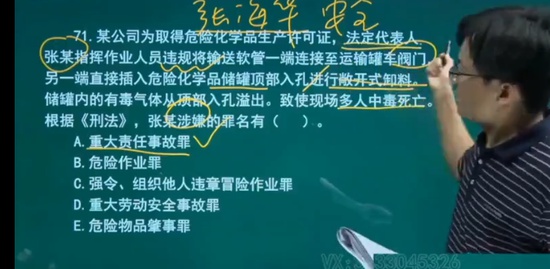 张海军 安全
71. 某公司为取得危险化学品生产许可证，法定代表人
张某指挥作业人员违规将输送软管一端连接至运输罐车阀门，
另一端直接插入危险化学品储罐顶部入孔进行敞开式卸料。
储罐内的有毒气体从顶部入孔溢出。致使现场多人中毒死亡。
根据《刑法》，张某涉嫌的罪名有（　）。
A. 重大责任事故罪
B. 危险作业罪
C. 强令、组织他人违章冒险作业罪
D. 重大劳动安全事故罪
E. 危险物品肇事罪